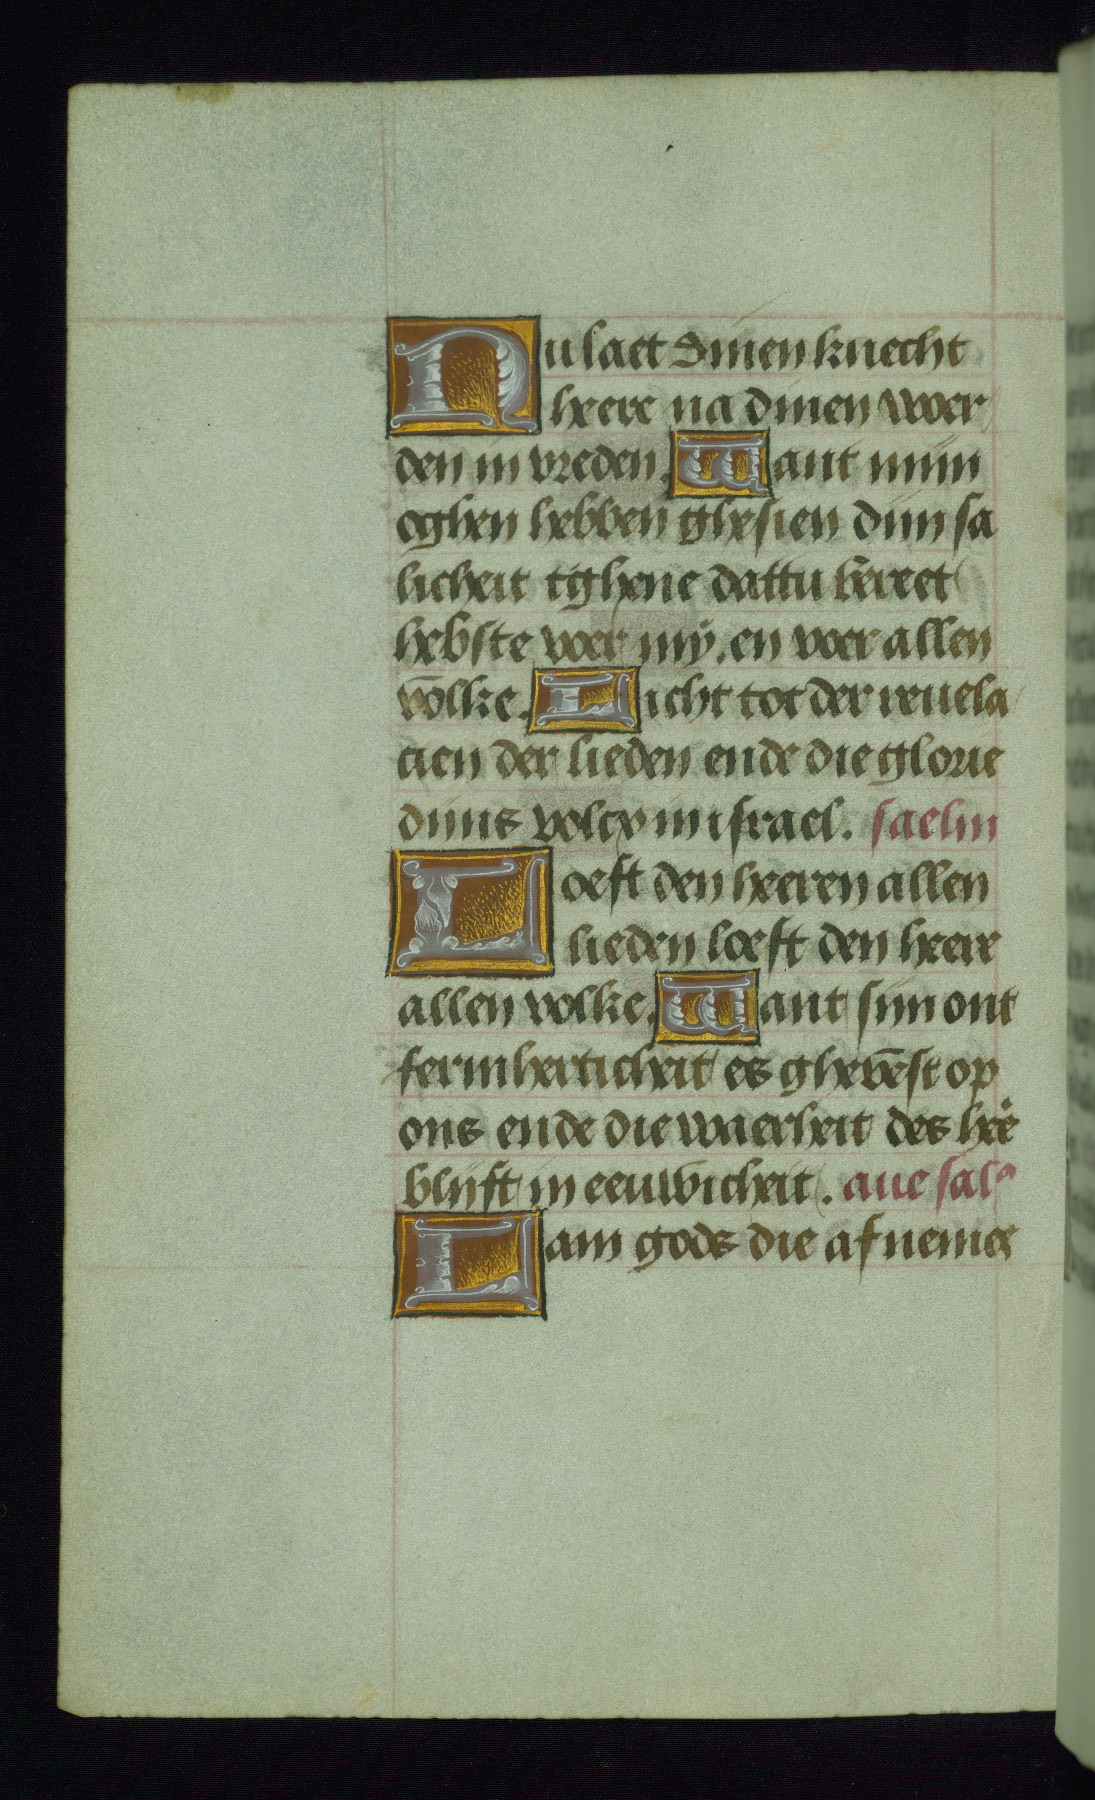 Nu laet dinen knecht
heere na dinen woer
den in vreden. Want mijn
oghen hebben ghesien dijn sa
licheit tghene dattu bereet
hebste voer mij. en voer allen
volke. Licht tot der reuela
cien der lieden ende die glorie
dijns volcx in israel. saelm
Loeft den heeren allen
lieden loeft den heere
allen volke. Want sijn ont
fermherticheit es gheuest op
ons ende die waerheit des hee
blijft in eeuwicheit. aue sal
Lam gods die af nemes